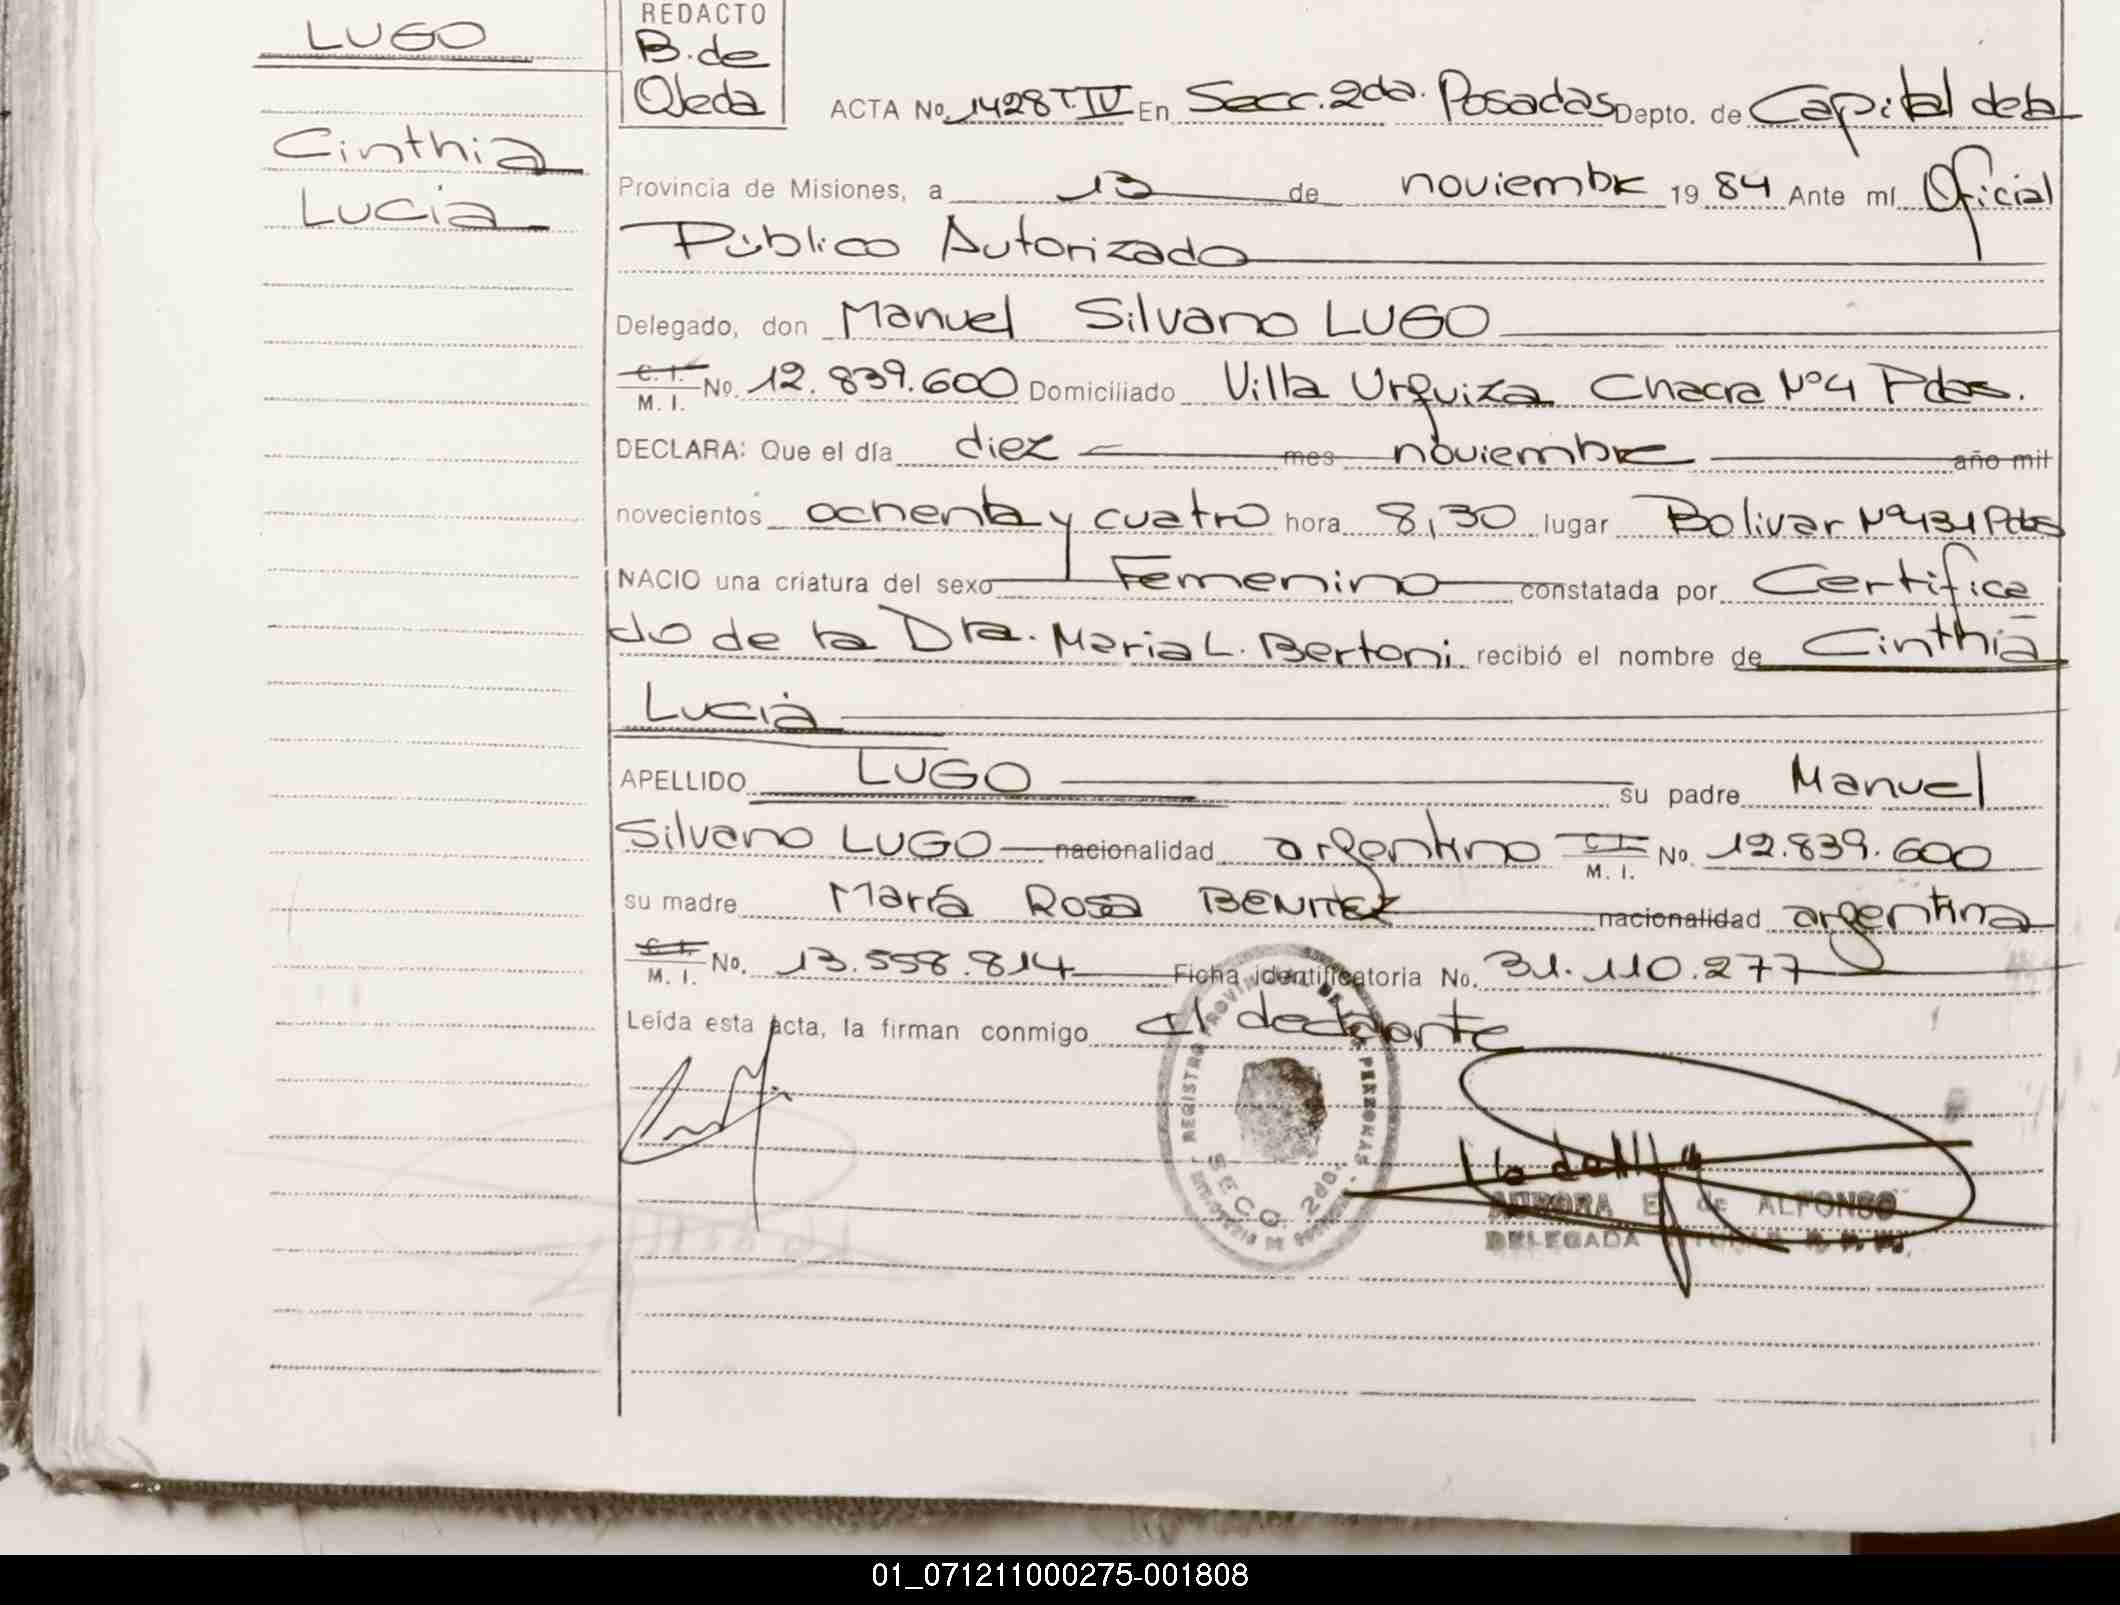 LUGO
Cinthia
Lucia
REDACTO
B. de
Ojeda
ACTA No. 1428 T IV En Secc. 2da. Posadas Depto. de Capital de la
Provincia de Misiones, a 13 de noviembre 1984 Ante mí Oficial
Público Autorizado
Delegado, don Manuel Silvano LUGO
C. I. M. I. No. 12.839.600 Domiciliado Villa Urquiza Chacra Nº4 Pdas.
DECLARA: Que el día diez mes noviembre año mil
novecientos ochenta y cuatro hora 8,30 lugar Bolivar Nº431 Pdas
NACIO una criatura del sexo Femenino constatada por Certifica
do de la Dra. Maria L. Bertoni recibió el nombre de Cinthia
Lucia
APELLIDO LUGO su padre Manuel
Silvano LUGO nacionalidad argentino C. I. M. I. No. 12.839.600
su madre María Rosa BENITEZ nacionalidad argentina
C. I. M. I. No. 13.558.814 Ficha identificatoria No. 31.110.277
Leída esta acta, la firman conmigo el declarante
REGISTRO PROVINCIAL DE LAS PERSONAS
SECC. 2da.
AURORA E. de ALFONSO
DELEGADA
01_071211000275-001808